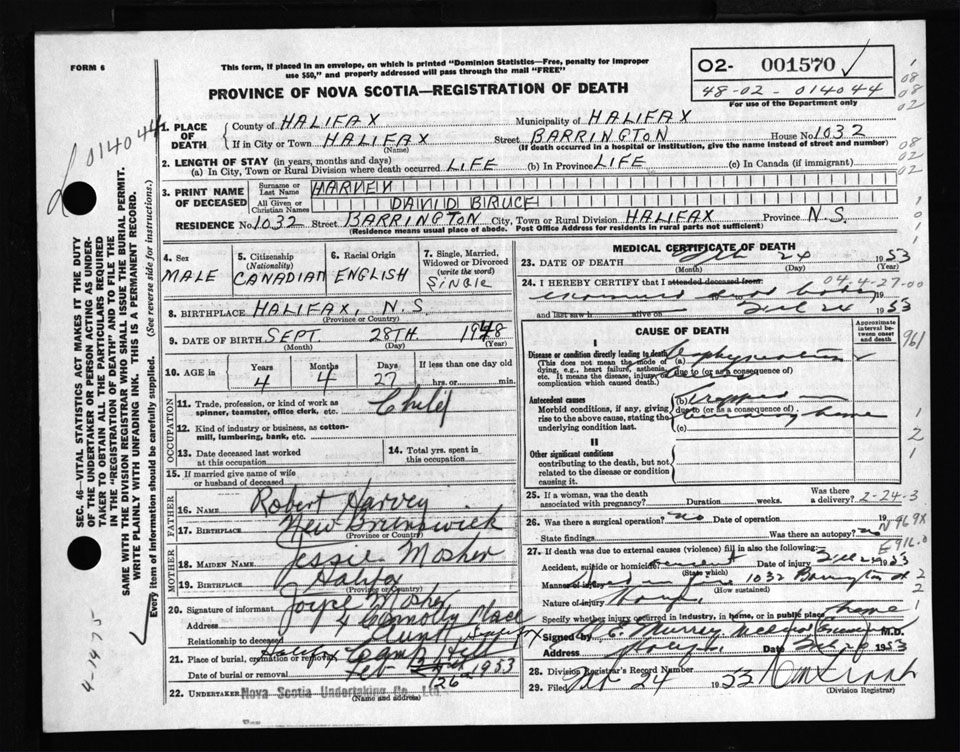 FORM 6
This form, if placed in an envelope, on which is printed "Dominion Statistics—Free, penalty for improper
use $50," and properly addressed will pass through the mail "FREE"
PROVINCE OF NOVA SCOTIA—REGISTRATION OF DEATH
02- 001570
48-02-014044
For use of the Department only
014044
1. PLACE OF DEATH
County of HALIFAX Municipality of HALIFAX
If in City or Town HALIFAX Street BARRINGTON House No. 1032
(Name) (If death occurred in a hospital or institution, give the name instead of street and number)
2. LENGTH OF STAY (in years, months and days)
(a) In City, Town or Rural Division where death occurred LIFE (b) In Province LIFE (c) In Canada (if immigrant)
3. PRINT NAME OF DECEASED
Surname or Last Name HARVEY
All Given or Christian Names DAVID BRUCE
RESIDENCE No. 1032 Street BARRINGTON City, Town or Rural Division HALIFAX Province N.S.
(Residence means usual place of abode. Post Office Address for residents in rural parts not sufficient)
4. Sex
MALE
5. Citizenship (Nationality)
CANADIAN
6. Racial Origin
ENGLISH
7. Single, Married, Widowed or Divorced (write the word)
SINGLE
8. BIRTHPLACE HALIFAX, N.S.
(Province or Country)
9. DATE OF BIRTH SEPT 28TH. 1948
(Month) (Day) (Year)
10. AGE in
Years Months Days If less than one day old
4 4 27 hrs. or min.
OCCUPATION
11. Trade, profession, or kind of work as spinner, teamster, office clerk, etc. Child
12. Kind of industry or business, as cotton-mill, lumbering, bank, etc.
13. Date deceased last worked at this occupation
14. Total yrs. spent in this occupation
15. If married give name of wife or husband of deceased
FATHER
16. NAME Robert Harvey
17. BIRTHPLACE New Brunswick
(Province or Country)
MOTHER
18. MAIDEN NAME Jessie Mosher
19. BIRTHPLACE Halifax
(Province or Country)
20. Signature of informant Joyce Mosher
Address 4 Connolly Place
Relationship to deceased Aunt Halifax
21. Place of burial, cremation or removal Halifax Camp Hill
Date of burial or removal Feb 26 1953
22. UNDERTAKER Nova Scotia Undertaking Co., Ltd.
(Name and Address)
MEDICAL CERTIFICATE OF DEATH
23. DATE OF DEATH Feb 24 1953
(Month) (Day) (Year)
24. I HEREBY CERTIFY that I attended deceased from:
examined dead body
and last saw h alive on Feb 24 1953
04,4-27-00
CAUSE OF DEATH
Approximate interval between onset and death
I
Disease or condition directly leading to death
(This does not mean the mode of dying, e.g., heart failure, asthenia, etc. It means the disease, injury, or complication which caused death.)
(a) Asphyxiation
due to (or as a consequence of)
Antecedent causes
Morbid conditions, if any, giving rise to the above cause, stating the underlying condition last.
(b) trapped in
due to (or as a consequence of)
burning home
(c)
II
Other significant conditions
contributing to the death, but not related to the disease or condition causing it
961
25. If a woman, was the death associated with pregnancy? Duration weeks. Was there a delivery?
2-24-3
26. Was there a surgical operation? no Date of operation 19
State findings Was there an autopsy? no
N969X
E916.0
27. If death was due to external causes (violence) fill in also the following:
Accident, suicide or homicide accident Date of injury Feb 24 1953
(State which)
Manner of injury 1032 Barrington St.
(How sustained)
Nature of injury
Specify whether injury occurred in industry, in home, or in public place home
Signed by Murray M.D.
Address Date Feb 1953
28. Division Registrar's Record Number
29. Filed Feb 27 1953
(Division Registrar)
SEC. 46—VITAL STATISTICS ACT MAKES IT THE DUTY
OF THE UNDERTAKER OR PERSON ACTING AS UNDER-
TAKER TO OBTAIN ALL THE PARTICULARS REQUIRED
IN THE "REGISTRATION OF DEATH" AND TO FILE THE
SAME WITH THE DIVISION REGISTRAR WHO SHALL ISSUE THE BURIAL PERMIT.
WRITE PLAINLY WITH UNFADING INK. THIS IS A PERMANENT RECORD.
Every item of information should be carefully supplied. (See reverse side for instructions.)
4-1475